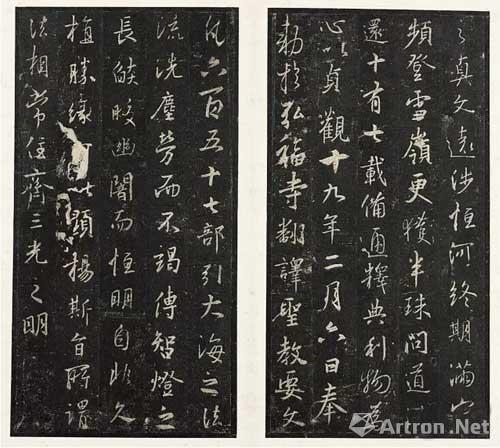 之真文遠涉恒河終期滿字
頻登雪嶺更獲半珠問道
還十有七載備通釋典利物為
心以貞觀十九年二月六日奉
勅於弘福寺翻譯聖教要文
凡六百五十七部引大海之法
流洗塵勞而不竭傳智燈之
長焰皎幽闇而恒明自非久
植勝緣何以顯揚斯旨所謂
法相常住齊三光之明
Artron.Net